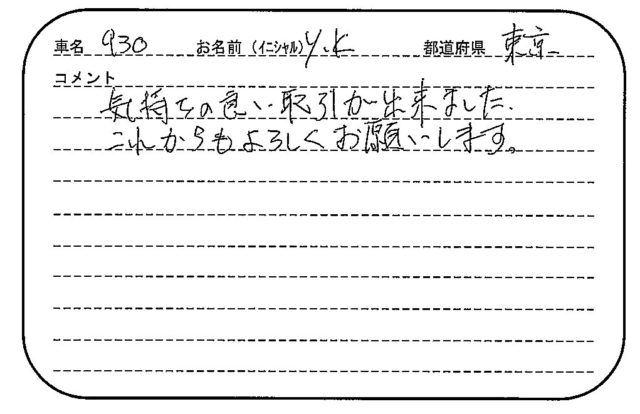 車名 930 お名前（イニシャル）Y.K 都道府県 東京
コメント
気持ちの良い取引が出来ました.
これからもよろしくお願いします。